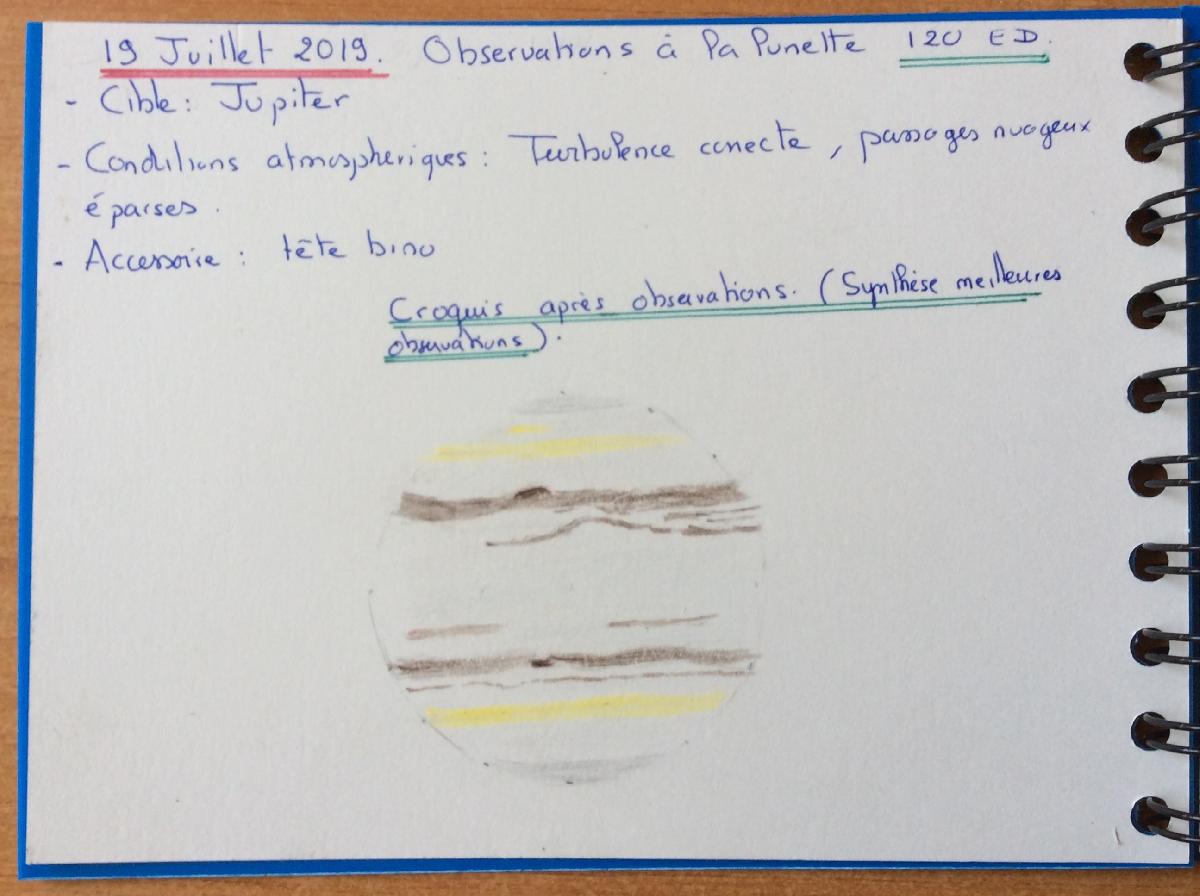 19 Juillet 2019. Observations à la lunette 120 ED.
- Cible : Jupiter
- Conditions atmosphériques : Turbulence correcte, passages nuageux
éparses.
- Accessoire : tête bino
Croquis après observations. (Synthèse meilleures
observations).